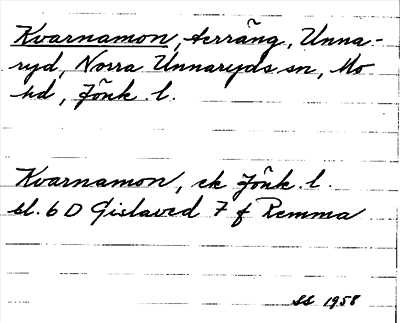 Kvarnamon, terräng, Unna-
ryd, Norra Unnaryds sn, Mo
hd, Jönk. l.
Kvarnamon, ek Jönk. l.
bl. 6 D Gislaved 7 f Remma
SS 1958